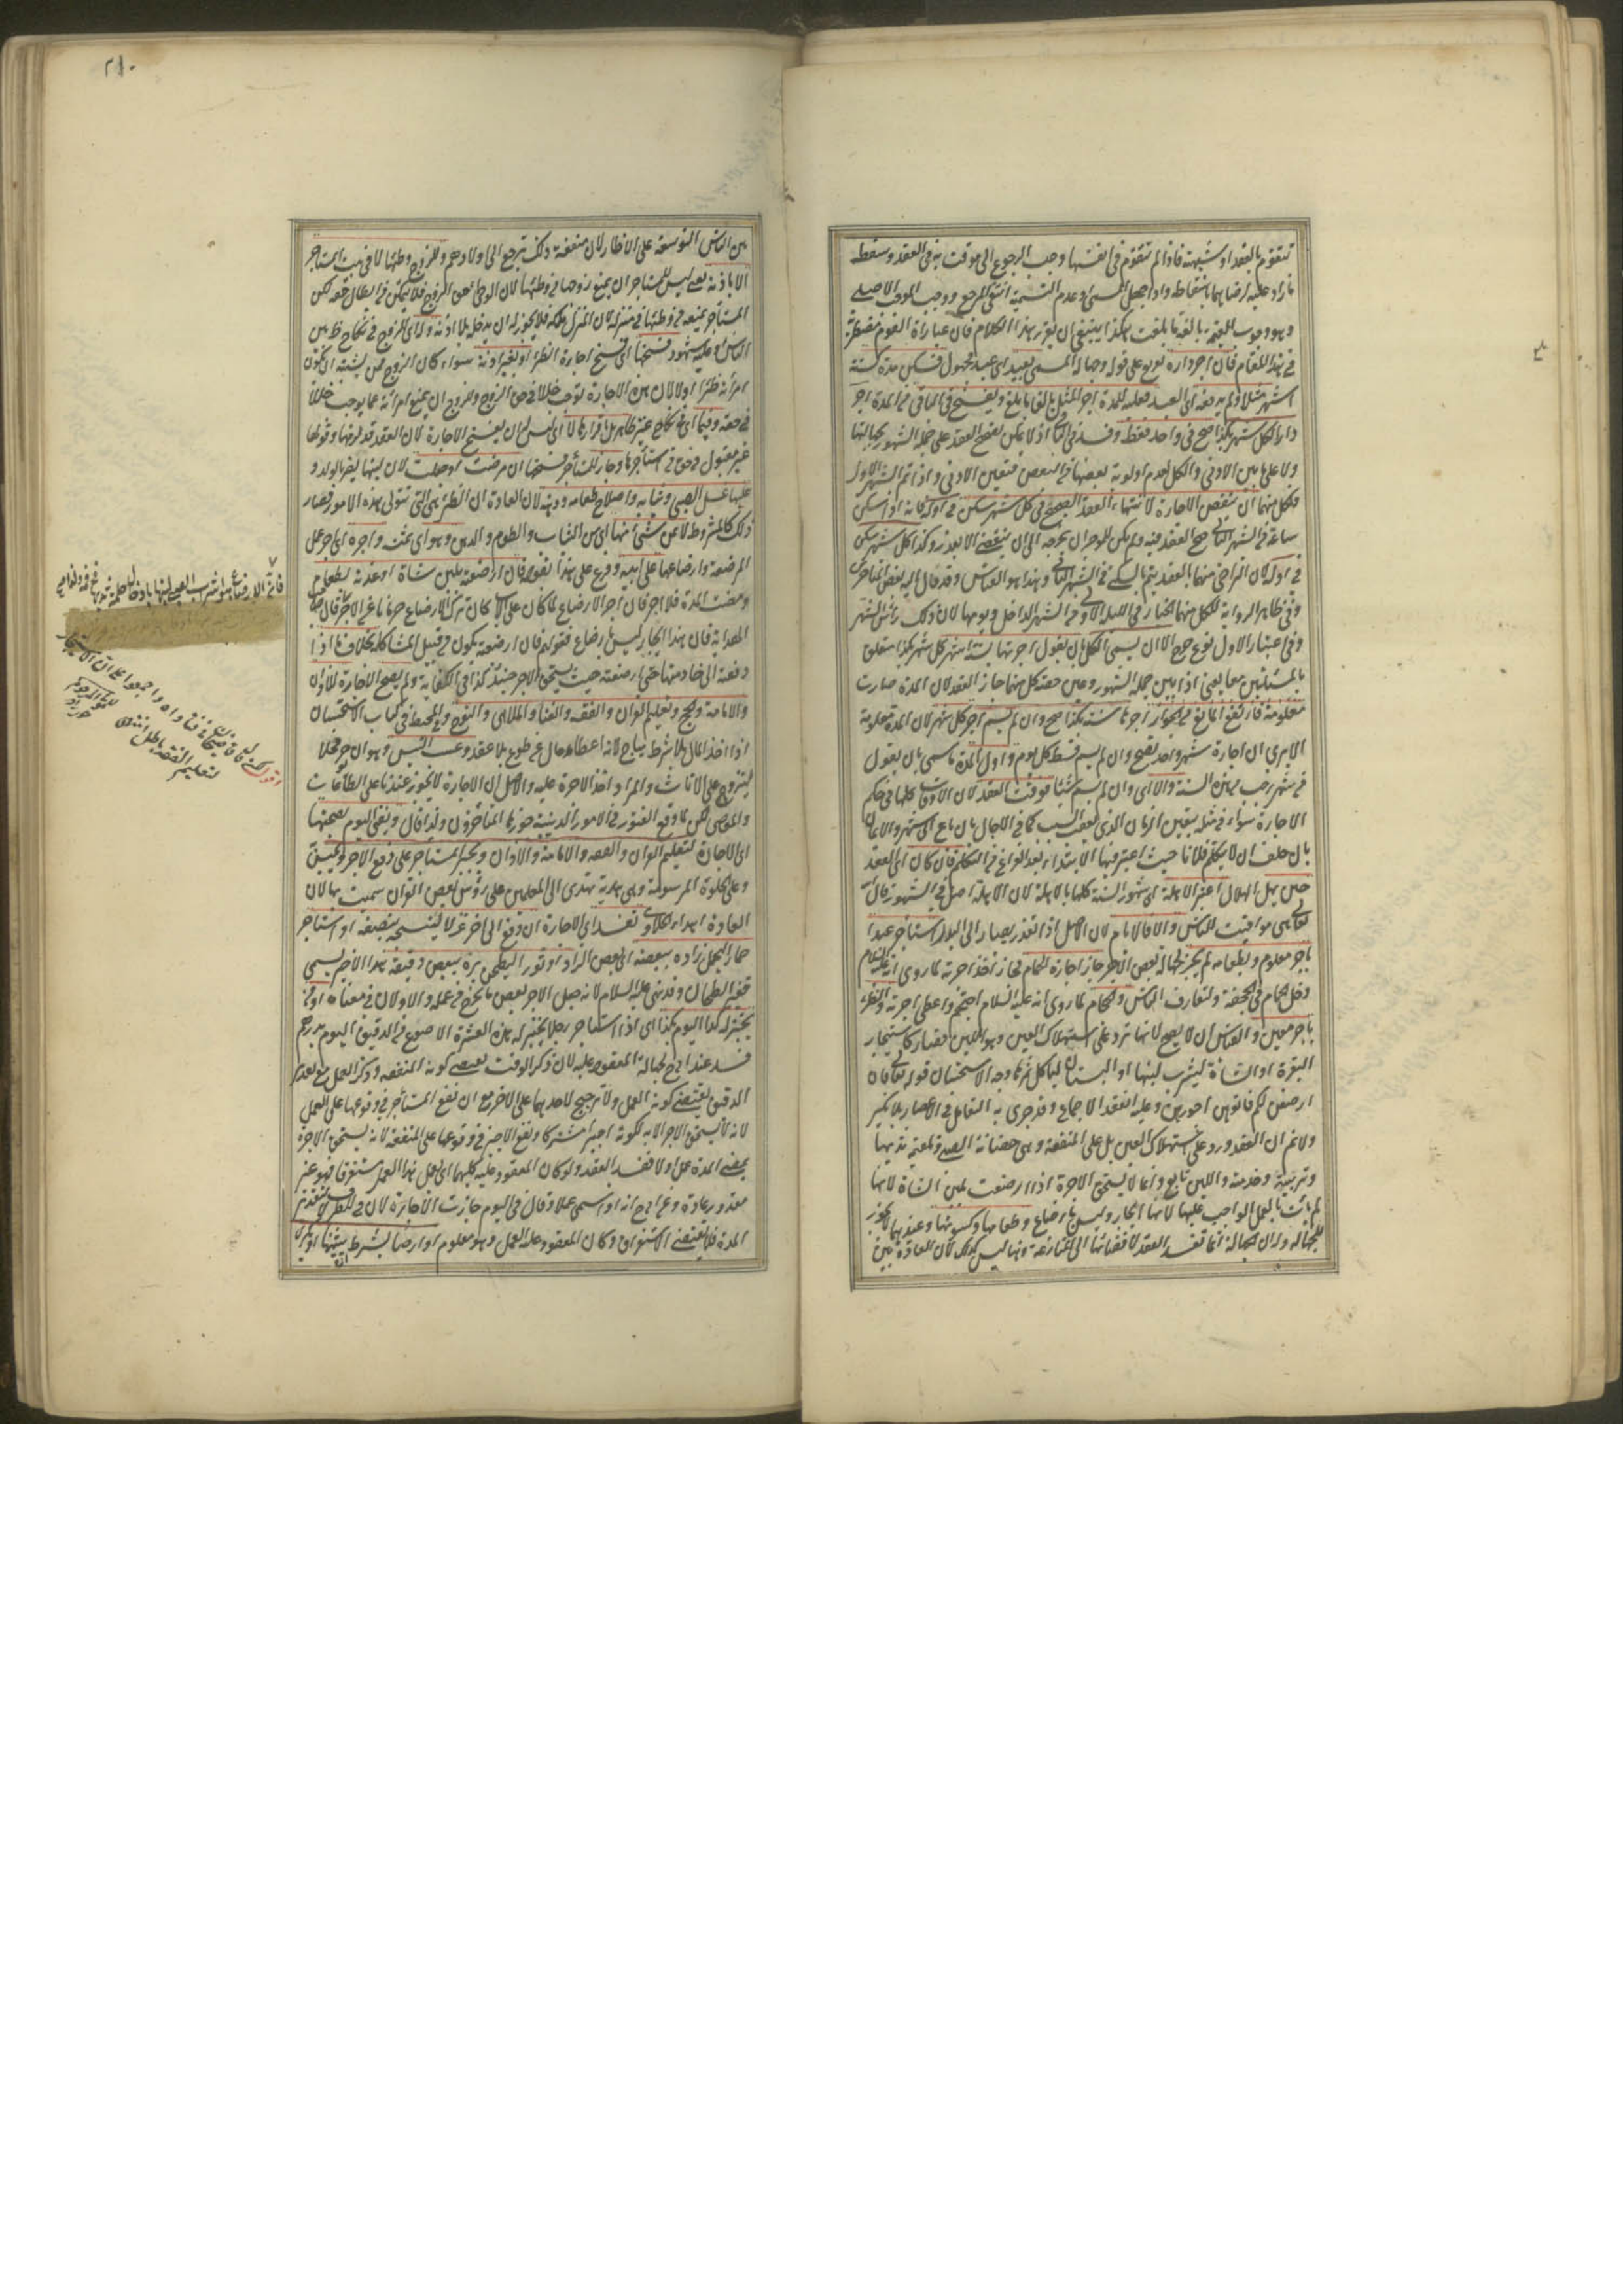 تتقوم بالعقد او شبهته فاذا لم تتقوم في انفسها وجب الرجوع الى ما قومت به في العقد وسقط
ما زاد عليه لرضاهما باسقاطه واذا جهل المسمى او عدم التسمية انتفى المرجع ووجب الموجب الاصلي
وهو وجوب القيمة بالغة ما بلغت هكذا ينبغي ان يقرر هذا الكلام فان عبارات القوم مضطربة
في هذا المقام فان اجر داره تفريع على قوله وجهالة المسمى بعبد اى عبد مجهول فسكن مدة كستة
اشهر مثلا ولم يدفعه اى العبد فعليه للمدة اجر المثل بالغا ما بلغ ويفسخ في الباقي من المدة اجر
دارا كل شهر بكذا صح في واحد فقط وفسد في الباقي اذ لا يمكن تصحيح العقد على جملة الشهور لجهالتها
ولا على ما بين الادنى والكل لعدم اولوية بعضها من البعض فتعين الادنى واذا تم الشهر الاول
فلكل منهما ان ينقض الاجارة لانتهاء العقد الصحيح وفي كل شهر سكن في اوله فانه اذا سكن
ساعة من الشهر الثاني صح العقد فيه ولم يكن للموجر ان يخرجه الى ان ينقضي الا بعذر وكذا كل شهر سكن
في اوله لان التراضي منهما بالعقد يتم بالسكنى في الشهر الثاني وهذا هو القياس وقد مال اليه بعض المتأخرين
وفي ظاهر الرواية لكل منهما الخيار في الليلة الاولى من الشهر الداخل ويومها لان ذلك رأس الشهر
وفي اعتبار الاول نوع حرج الا ان يسمى الكل بان يقول اجرتها ستة اشهر كل شهر بكذا متعلق
بالمسئلتين معا يعني اذا بين جملة الشهور وعين حصة كل منها جاز العقد لان المدة صارت
معلومة فارتفع المانع من الجواز اجرها سنة بكذا صح وان لم يسم اجر كل شهر لان المدة معلومة
الا يرى ان اجارة شهر واحد تصح وان لم يسم قسط كل يوم واول المدة ما سمى بان يقول
من شهر رجب من هذه السنة والا اى وان لم يسم شيئا فوقت العقد لان الاوقات كلها في حكم
الاجارة سواء في مثله يتعين الزمان الذي يعقب السبب كما في الاجال بان باع الى شهر والايمان
بان حلف ان لا يكلم فلانا حيث اعتبر فيها الابتداء بعد الفراغ من التكلم فان كان اى العقد
حين يهل الهلال اعتبر الاهلة اى شهور السنة كلها بالاهلة لان الاهلة اصل في الشهور قال الله
تعالى هي مواقيت للناس والا فالايام لان الاصل اذا تعذر يصار الى البدل استأجر عبدا
باجر معلوم وبطعامه لم يجز لجهالة بعض الاجر جاز اجارة الحمام فجاز اخذ اجرته لما روى انه عليه السلام
دخل الحمام في الجحفة ولتعارف الناس والحجام لما روى انه عليه السلام احتجم واعطى اجرته والظئر
باجر معين والقياس ان لا يصح لانها ترد على استهلاك العين وهو اللبن فصار كاستيجار
البقرة او الشاة ليشرب لبنها او البستان لياكل ثمرها وجه الاستحسان قوله تعالى فان
ارضعن لكم فاتوهن اجورهن وعليه انعقد الاجماع وقد جرى به التعامل في الاعصار بلا نكير
ولا نم ان العقد ورد على استهلاك العين بل على المنفعة وهي حضانة الصبي وتلقيمه ثديها
وتربيته وخدمته واللبن تابع وانما لا يستحق الاجرة اذا ارضعت بلبن الشاة لانها
لم تأت بالعمل الواجب عليها لانها ايجار وليس بارضاع وطعامها وكسوتها وعندهما لا يجوز
للجهالة وله ان الجهالة انما تفسد العقد لافضائها الى المنازعة وهنا ليس كذلك لان العادة بين
٢١٠
بين الناس التوسعة على الاظآر لان منفعة ذلك ترجع الى اولادهم وللزوج وطئها لا في بيت المستأجر
الا باذنه يعني ليس للمستأجر ان يمنع زوجها من وطئها لان الوطئ حق الزوج فلا يتمكن من ابطال حقه لكن
المستأجر يمنعه من وطئها في منزله لان المنزل ملكه فلا يجوز له ان يدخله بلا اذنه وله اى للزوج في نكاح ظ بين
الناس او عليه شهود فسخها اى فسخ اجارة الظئر لو بغير اذنه سواء كان الزوج ممن يشينه ان يكون
امرأته ظئرا او لا لان هذه الاجارة توجب خللا في حق الزوج وللزوج ان يمنع امرأته عما يوجب خللا
في حقه وفيما اى في نكاح غير ظاهر بل باقرارهما لا اى ليس له ان يفسخ الاجارة لان العقد قد لزمها وقولها
غير مقبول في حق من استأجرها وجاز للمستأجر فسخها ان مرضت او حبلت لان لبنها يضر بالولد و
عليها غسل الصبي وثيابه واصلاح طعامه ودهنه لان العادة ان الظئر هي التي تتولى هذه الامور فصار
ذلك كالمشروط لا ثمن شئ منها اى من الثياب والطعام والدهن وهو اى ثمنه واجرة اى اجر عمل
المرضعة وارضاعها على ابيه وفرع على هذا بقوله فان ارضعته بلبن شاة او غذته بطعام
ومضت المدة فلا اجر فان اجر الارضاع لما كان على الاب كان ترك الارضاع حرمانا عن الاجر قال صاحب
الهداية فان هذا ايجار ليس بارضاع فقولهم فان ارضعته يكون من قبيل المشاكلة بخلاف ما اذا
دفعته الى خادمتها حتى ارضعته حيث يستحق الاجر حينئذ كذا في الكفاية ولم يصح الاجارة للاذان
والامامة والحج وتعليم القران والفقه والغنا والملاهي والنوح وفي المحيط في كتاب الاستحسان
اذا اخذ المال بلا شرط يباح لانه اعطاه مال عن طوع بلا عقد وعسب التيس وهو ان يوجر فحلا
لينزو على الاناث والمراد اخذ الاجرة عليه والاصل ان الاجارة لا تجوز عندنا على الطاعات
والمعاصي لكن لما وقع الفتور في الامور الدينية جوزها المتأخرون ولذا قال ويفتى اليوم بصحتها
اى الاجارة لتعليم القران والفقه والامامة والاذان ويجبر المستأجر على دفع الاجر ويحبس
وعلى الحلوة المرسومة وهي هدية تهدى الى المعلمين على رؤس بعض القران سميت بها لان
العادة اهداء الحلاوى تفسد اى الاجارة ان دفع الى اخر غزلا لينسجه بنصفه او استأجر
حمارا ليحمل زاده ببعضه اى بعض الزاد او ثورا ليطحن بره ببعض دقيقه هذا الاخير يسمى
قفيز الطحان وقد نهى عنه عليه السلام لانه جعل الاجر بعض ما يخرج من عمله والاولان في معناه او من
يخبز له كذا اليوم بكذا اى اذا استأجر رجلا ليخبز له هذه العشرة الاصوع من الدقيق اليوم بدرهم
فسد عند ابي ح لجهالة المعقود عليه لان ذكر الوقت يقتضي كونه المنفعة وذكر العمل مع تقدير
الدقيق يقتضي كونه العمل ولا ترجيح لاحدهما على الاخر مع ان نفع المستأجر في وقوعها على العمل
لانه لا يستحق الاجر الا به لكونه اجيرا مشتركا ونفع الاجير في وقوعها على المنفعة لانه يستحق الاجرة
بمضي المدة عمل او لا ففسد العقد ولو كان المعقود عليه كليهما اى يعمل هذا العمل مستغرقا فهو غير
مقدور عادة وعن ابي ح انه اذا سمى عملا وقال في اليوم جازت الاجارة لان في للظرف لا لتقدير
المدة فلا يقتضي الاستغراق وكان المعقود عليه العمل وهو معلوم او ارضا بشرط ان يثنيها او يكرى